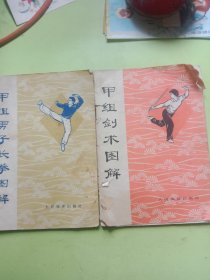 甲组男子长拳图解
人民体育出版社
甲组剑术图解
人民体育出版社